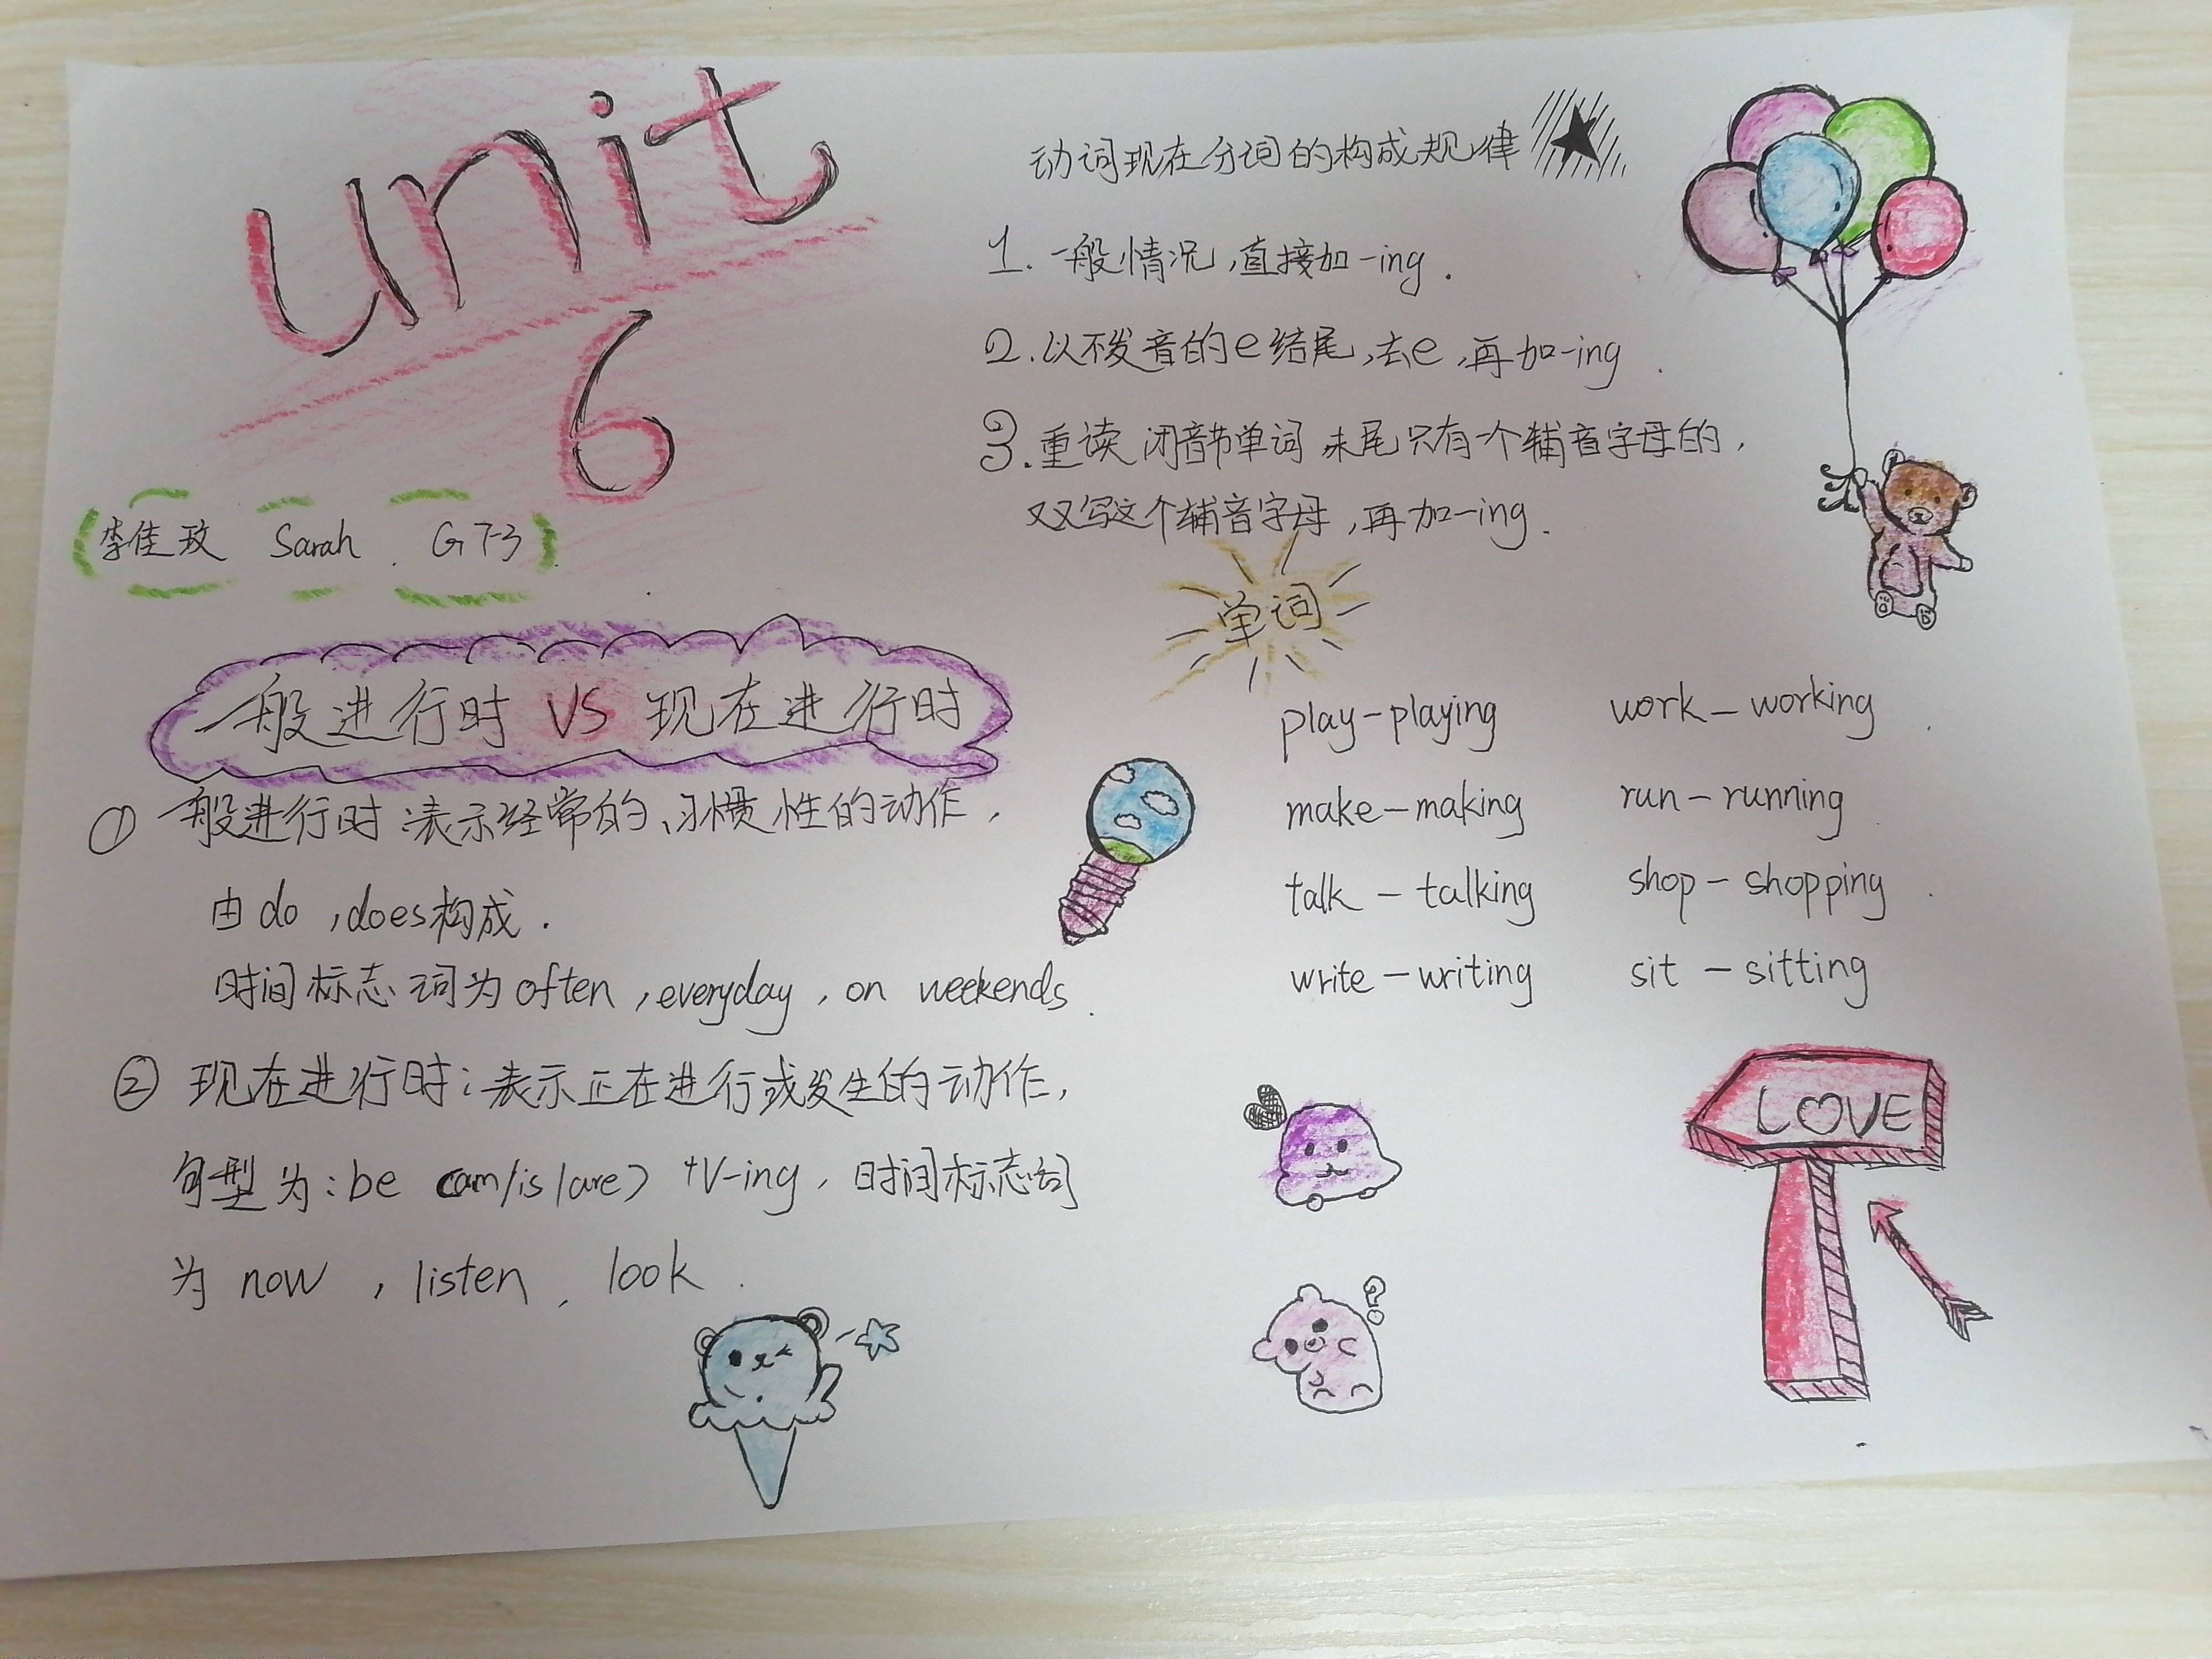 unit
6
李佳玫 Sarah. G7-3
一般进行时 VS 现在进行时
① 一般进行时:表示经常的、习惯性的动作,
由do,does构成.
时间标志词为often,everyday,on weekends.
② 现在进行时:表示正在进行或发生的动作,
句型为:be (am/is/are) +V-ing,时间标志词
为 now,listen,look.
动词现在分词的构成规律
1. 一般情况,直接加-ing.
2.以不发音的e结尾,去e,再加-ing.
3.重读闭音节单词末尾只有一个辅音字母的,
双写这个辅音字母,再加-ing.
单词
play-playing work-working
make-making run-running
talk-talking shop-shopping
write-writing sit-sitting
LOVE
?